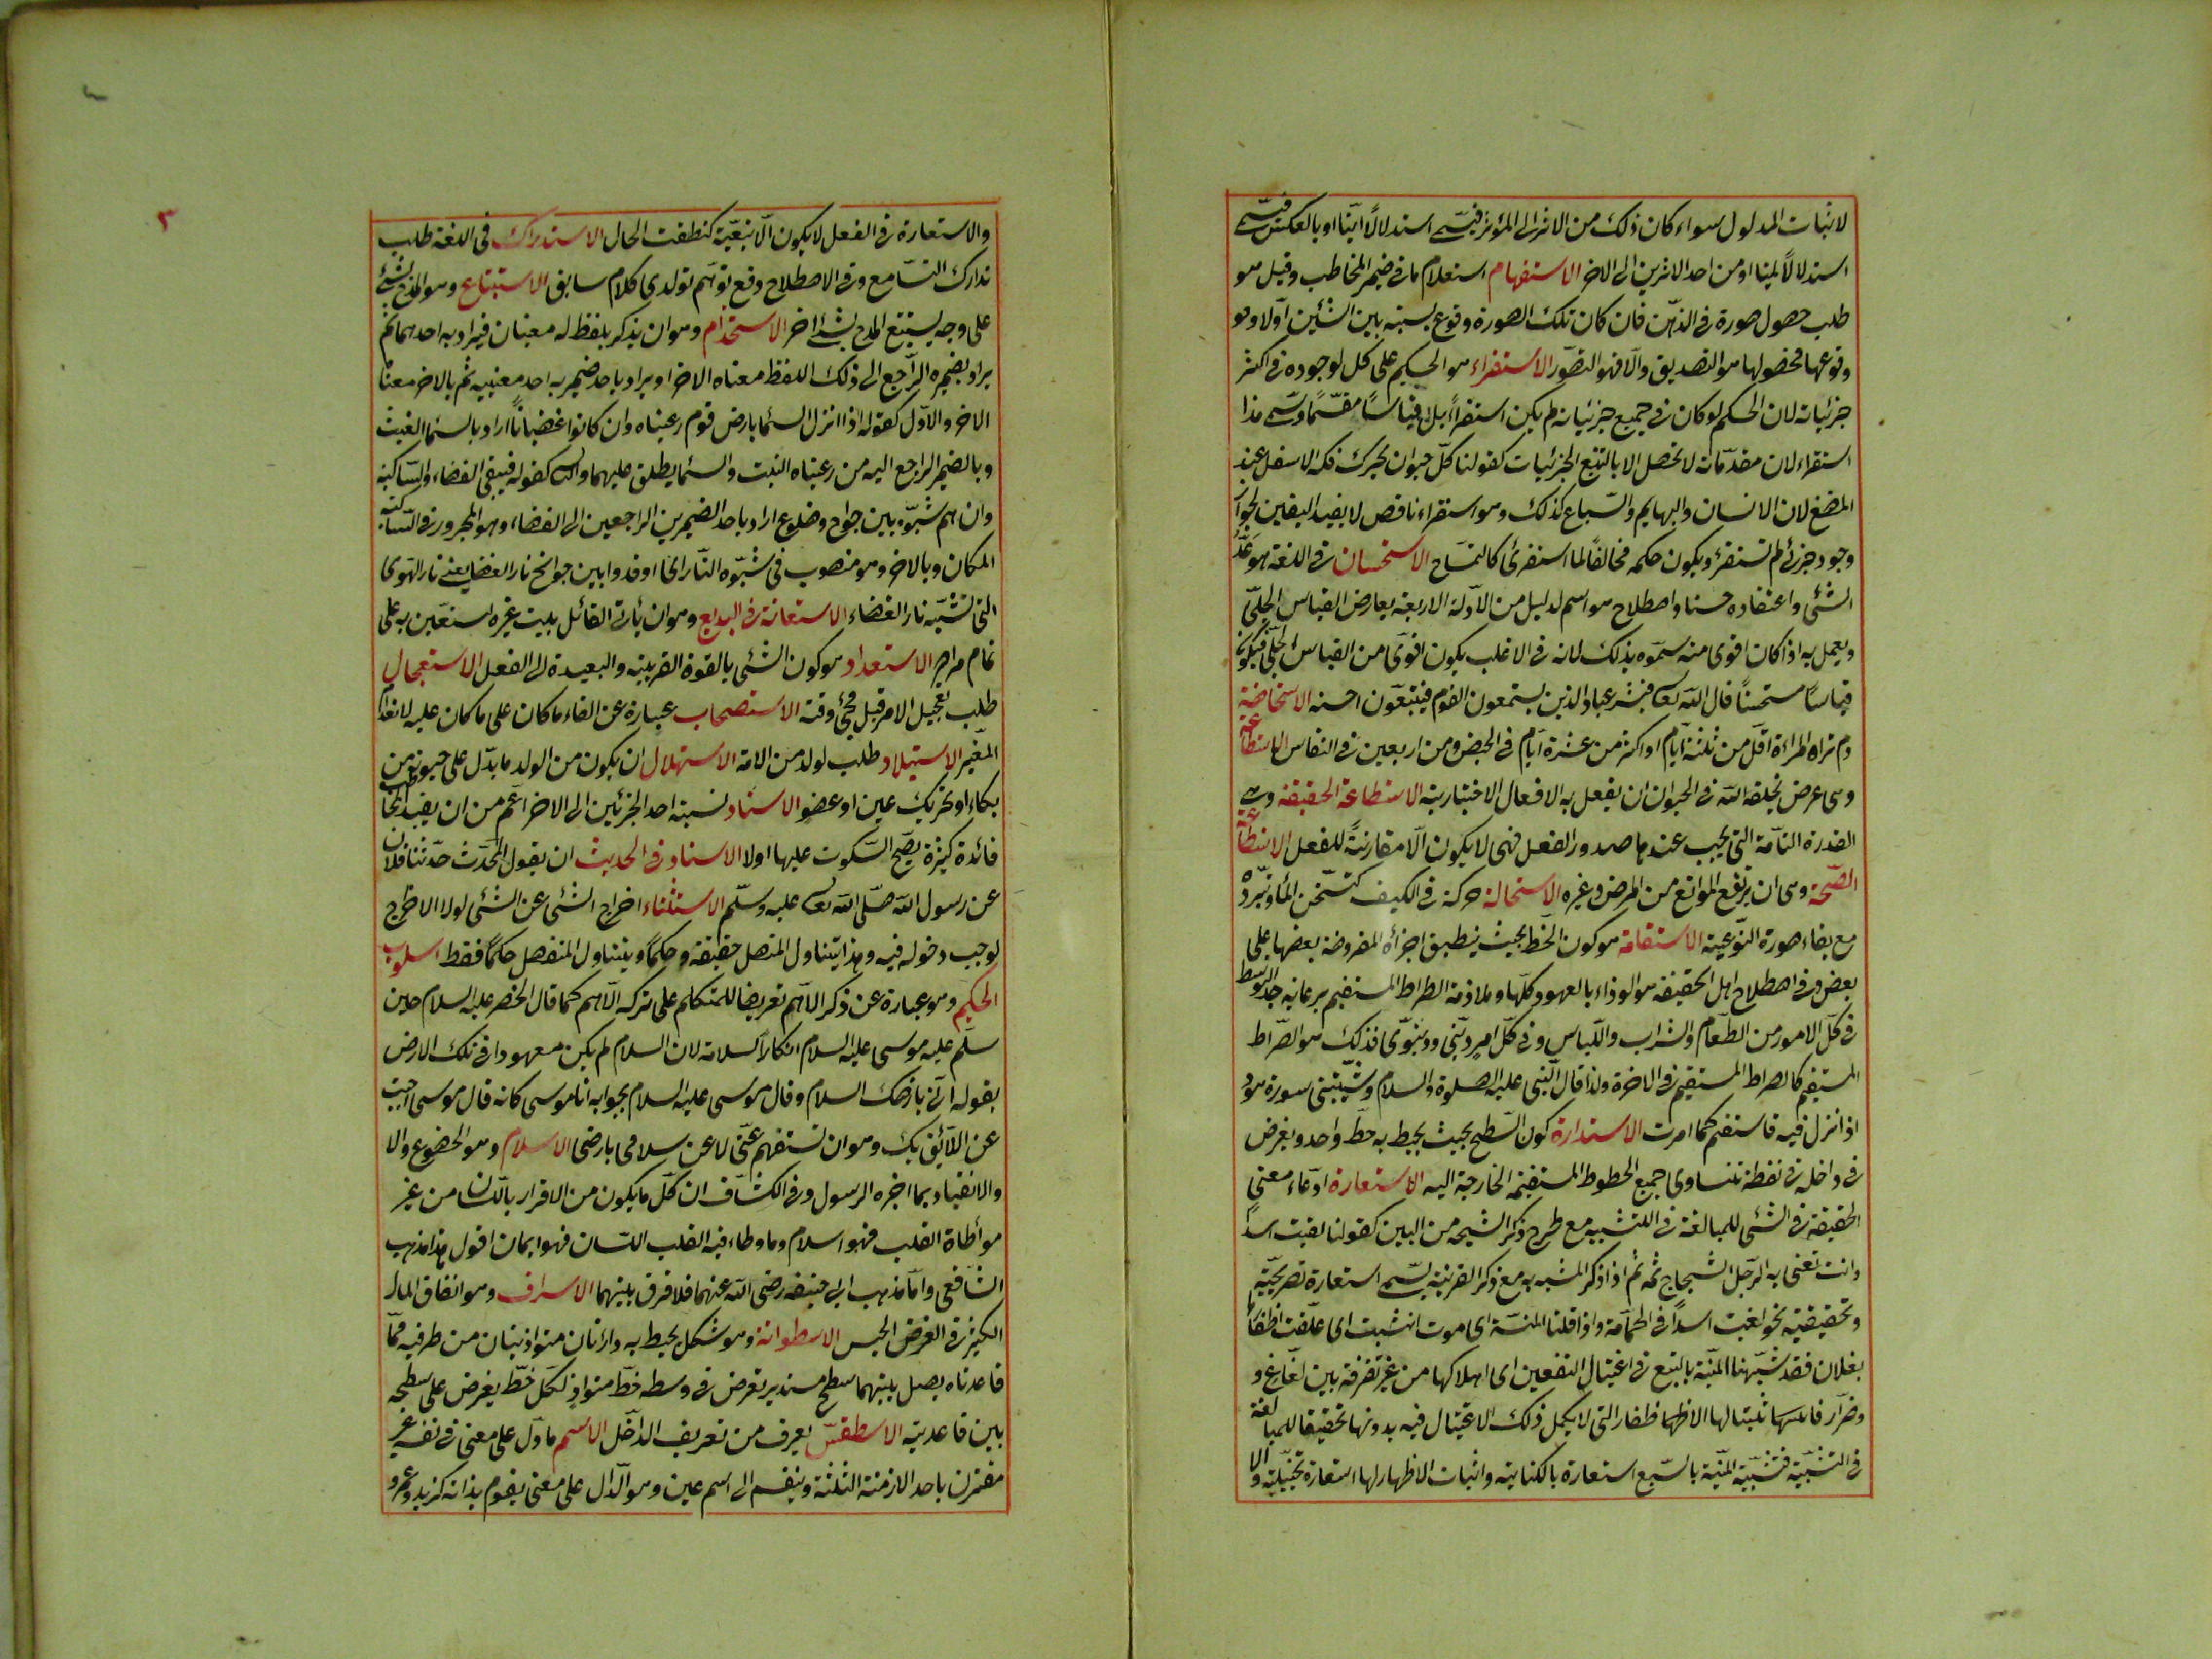 لاثبات المدلول سواء كان ذلك من الاثر الى المؤثر فيسمى استدلالا انيا او بالعكس فيسمى
استدلالا لميا او من احد الاثرين الى الاخر الاستفهام استعلام ما فى ضمير المخاطب وقيل هو
طلب حصول صورة فى الذهن فان كان تلك الصورة وقوع نسبته بين الشئين اولا وقو
وقوعها فحصولها هو التصديق والا فهو التصور الاستقراء هو الحكم على كل لوجوده فى اكثر
جزئياته لان الحكم لو كان فى جميع جزئياته لم يكن استقراء بل قياسا مقسما ويسمى هذا
استقراء لان مقدماته لا تحصل الا بالتتبع الجزئيات كقولنا كل حيوان يحرك فكه الاسفل عند
المضغ لان الانسان والبهايم والسباع كذلك وهو استقراء ناقص لا يفيد اليقين لجواز
وجود جزئى لم تستقرئ ويكون حكمه مخالفا لما استقرئ كالتمساح الاستحسان فى اللغة هو عد
الشئى واعتقاده حسنا واصطلاح هو اسم لدليل من الادلة الاربعة يعارض القياس الجلى
ويعمل به اذا كان اقوى منه سموه بذلك لانه فى الاغلب يكون اقوى من القياس الجلى فيكون
قياسا مستحسنا قال الله تعا فبشر عباد الذين يستمعون القوم فيتبعون احسنه الاستحاضة
دم تراه المراءة اقل من ثلثة ايام او اكثر من عشرة ايام فى الحيض ومن اربعين فى النفاس الاستطاعة
وهى عرض يخلقه الله فى الحيوان ان يفعل به الافعال الاختيارية الاستطاعة الحقيقة وهى
القدرة التامة التى يجب عندها صدور الفعل فهى لا يكون الا مقارنة للفعل الاستطاعة
الصحة وهى ان يرتفع الموانع من المرض وغيره الاستحالة حركة فى الكيف كتسخن الماء وتبرده
مع بقاء صورة النوعية الاستقامة هو كون الخط بحيث ينطبق اجزأه المفروضة بعضها على
بعض وفى اصطلاح اهل الحقيقة هو الوفاء بالعهود كلها وملازمة الصراط المستقيم برعاية حد التوسط
فى كل الامور من الطعام والشراب واللباس وفى كل امر دينى ودينوى فذلك هو الصراط
المستقيم كالصراط المستقيم فى الاخرة ولذا قال النبى عليه الصلوة والسلام وشيبتنى سورة هود
اذ انزل فيه فاستقم كما امرت الاستدارة كون السطح بحيث يحيط به خط واحد ويعرض
فى داخله فى نقطة تتساوى جميع الخطوط المستقيمة الخارجة اليه الاستعارة ادعاء معنى
الحقيقة فى الشئى للمبالغة فى التشبيه مع طرح ذكر الشيحه من البين كقولنا لقيت اسدا
وانت تعنى به الرجل الشجاج ثمه ثم اذا ذكر المشبه به مع ذكر القرينة يسمى استعارة تصريحية
وتحقيقية نحو لقيت اسدا فى الحمامة واذا قلنا المنية اى موت انشبت اى علقت اظفارها
بفلان فقد شبهنا المنية بالتبع فى اغتيال النفعين اى اهلاكها من غير تفرقة بين الفاع و
وضرار فاثبتنا لها الاظفار التى لا يكمل ذلك الاغتيال فيه بدونها تحقيقا للمبالغة
فى التشبية فتشبية المنية بالسبع استعارة بالكناية واثبات الاظهار لها استعارة تخييلية والا
والاستعارة فى الفعل لا يكون الا تبعية كنطقت الحال الاستدراك فى اللغة طلب
تدارك السامع وفى الاصطلاح دفع توهم تولد من كلام سابق الاستتباع وهو المدح بشئى
على وجه يستتبع المدح بشئى اخر الاستخدام وهو ان يذكر بلفظ له معنيان فيراد به احدهما ثم
يراد بضميره الراجع الى ذلك اللفظ معناه الاخر او يراد باحد ضميربه احد معنييه ثم بالاخر معناه
الاخر والاول كقوله اذا انزل السما بارض قوم رعيناه وان كانوا غضبانا اراد بالسما الغيث
وبالضمير الراجع اليه من رعيناه النبت والسما يطلق عليهما والثا كقوله فيبقى الغضاء والساكنة
وان هم شبوه بين جوائح وضلوع اراد باحد الضميرين الراجعين الى الغضاء وهو المجرور فى الساكنه
المكان وبالاخر وهو منصوب فى شبوه النار اى اوقدوا بين جوانح نار الغضا يعنى نار الهوى
التى تشبه نار الغضاء الاستعانة فى البديع وهو ان يأتى القائل ببيت غيره استعين به على
تمام مراده الاستعداد هو كون الشئى بالقوة القريبة والبعيدة الى الفعل الاستعجال
طلب تعجيل الامر قبل مجئ وقته الاستصحاب عبارة عن القاء ما كان على ما كان عليه لانعدام
المغير الاستيلاد طلب لولد من الامة الاستهلال ان يكون من الولد ما يدل على حيوته من
بكاء او تحريك عين او عضو الاسناد نسبة احد الجزئين الى الاخر اعم من ان يفيد المخاطب
فائدة كثيرة يصح السكوت عليها اولا الاسناد فى الحديث ان يقول المحدث حدثنا فلان
عن رسول الله صلى الله تعا عليه وسلم الاستثناء اخراج الشئى عن الشئى لولا الاخراج
لوجب دخوله فيه وهذا يتناول المتصل حقيقة وحكما ويتناول المنفصل حكما فقط اسلوب
الحكيم وهو عبارة عن ذكر الاهم تعريضا للمتكلم على تركه الاهم كما قال الخضر عليه السلام حين
سلم عليه موسى عليه السلام انكارا لسلامه لان السلام لم يكن معهودا فى تلك الارض
بقوله انى بارضك السلام وقال موسى عليه السلام بجوابه انا موسى كانه قال موسى اجبت
عن اللائق بك وهو ان تستفهم عنى لا عن سلامى بارضى الاسلام وهو الخضوع والا
والانقياد بما اخبره الرسول وفى الكشاف ان كل ما يكون من الاقرار باللسان من غير
موأطاة القلب فهو اسلام وما وطاء فيه القلب اللسان فهو ايمان اقول هذا مذهب
الشافعى واما مذهب ابى حنيفه رضى الله عنهما فلا فرق بينهما الاسراف وهو انفاق المال
الكثير فى الغرض الخس الاسطوانة وهو شكل يحيط به دائرتان متواذيتان من طرفيه هما
قاعدتاه يصل بينهما سطح مستدير تعرض فى وسطه خط متواز لكل خط يغرض على سطحه
بين قاعدتيه الاسطقس يعرف من تعريف الداخل الاسم ما دل على معنى فى نفسه غير
مقترن باحد الازمنة الثلثة وينقسم الى اسم عين وهو الدال على معنى يقوم بذاته كزيد وعمرو